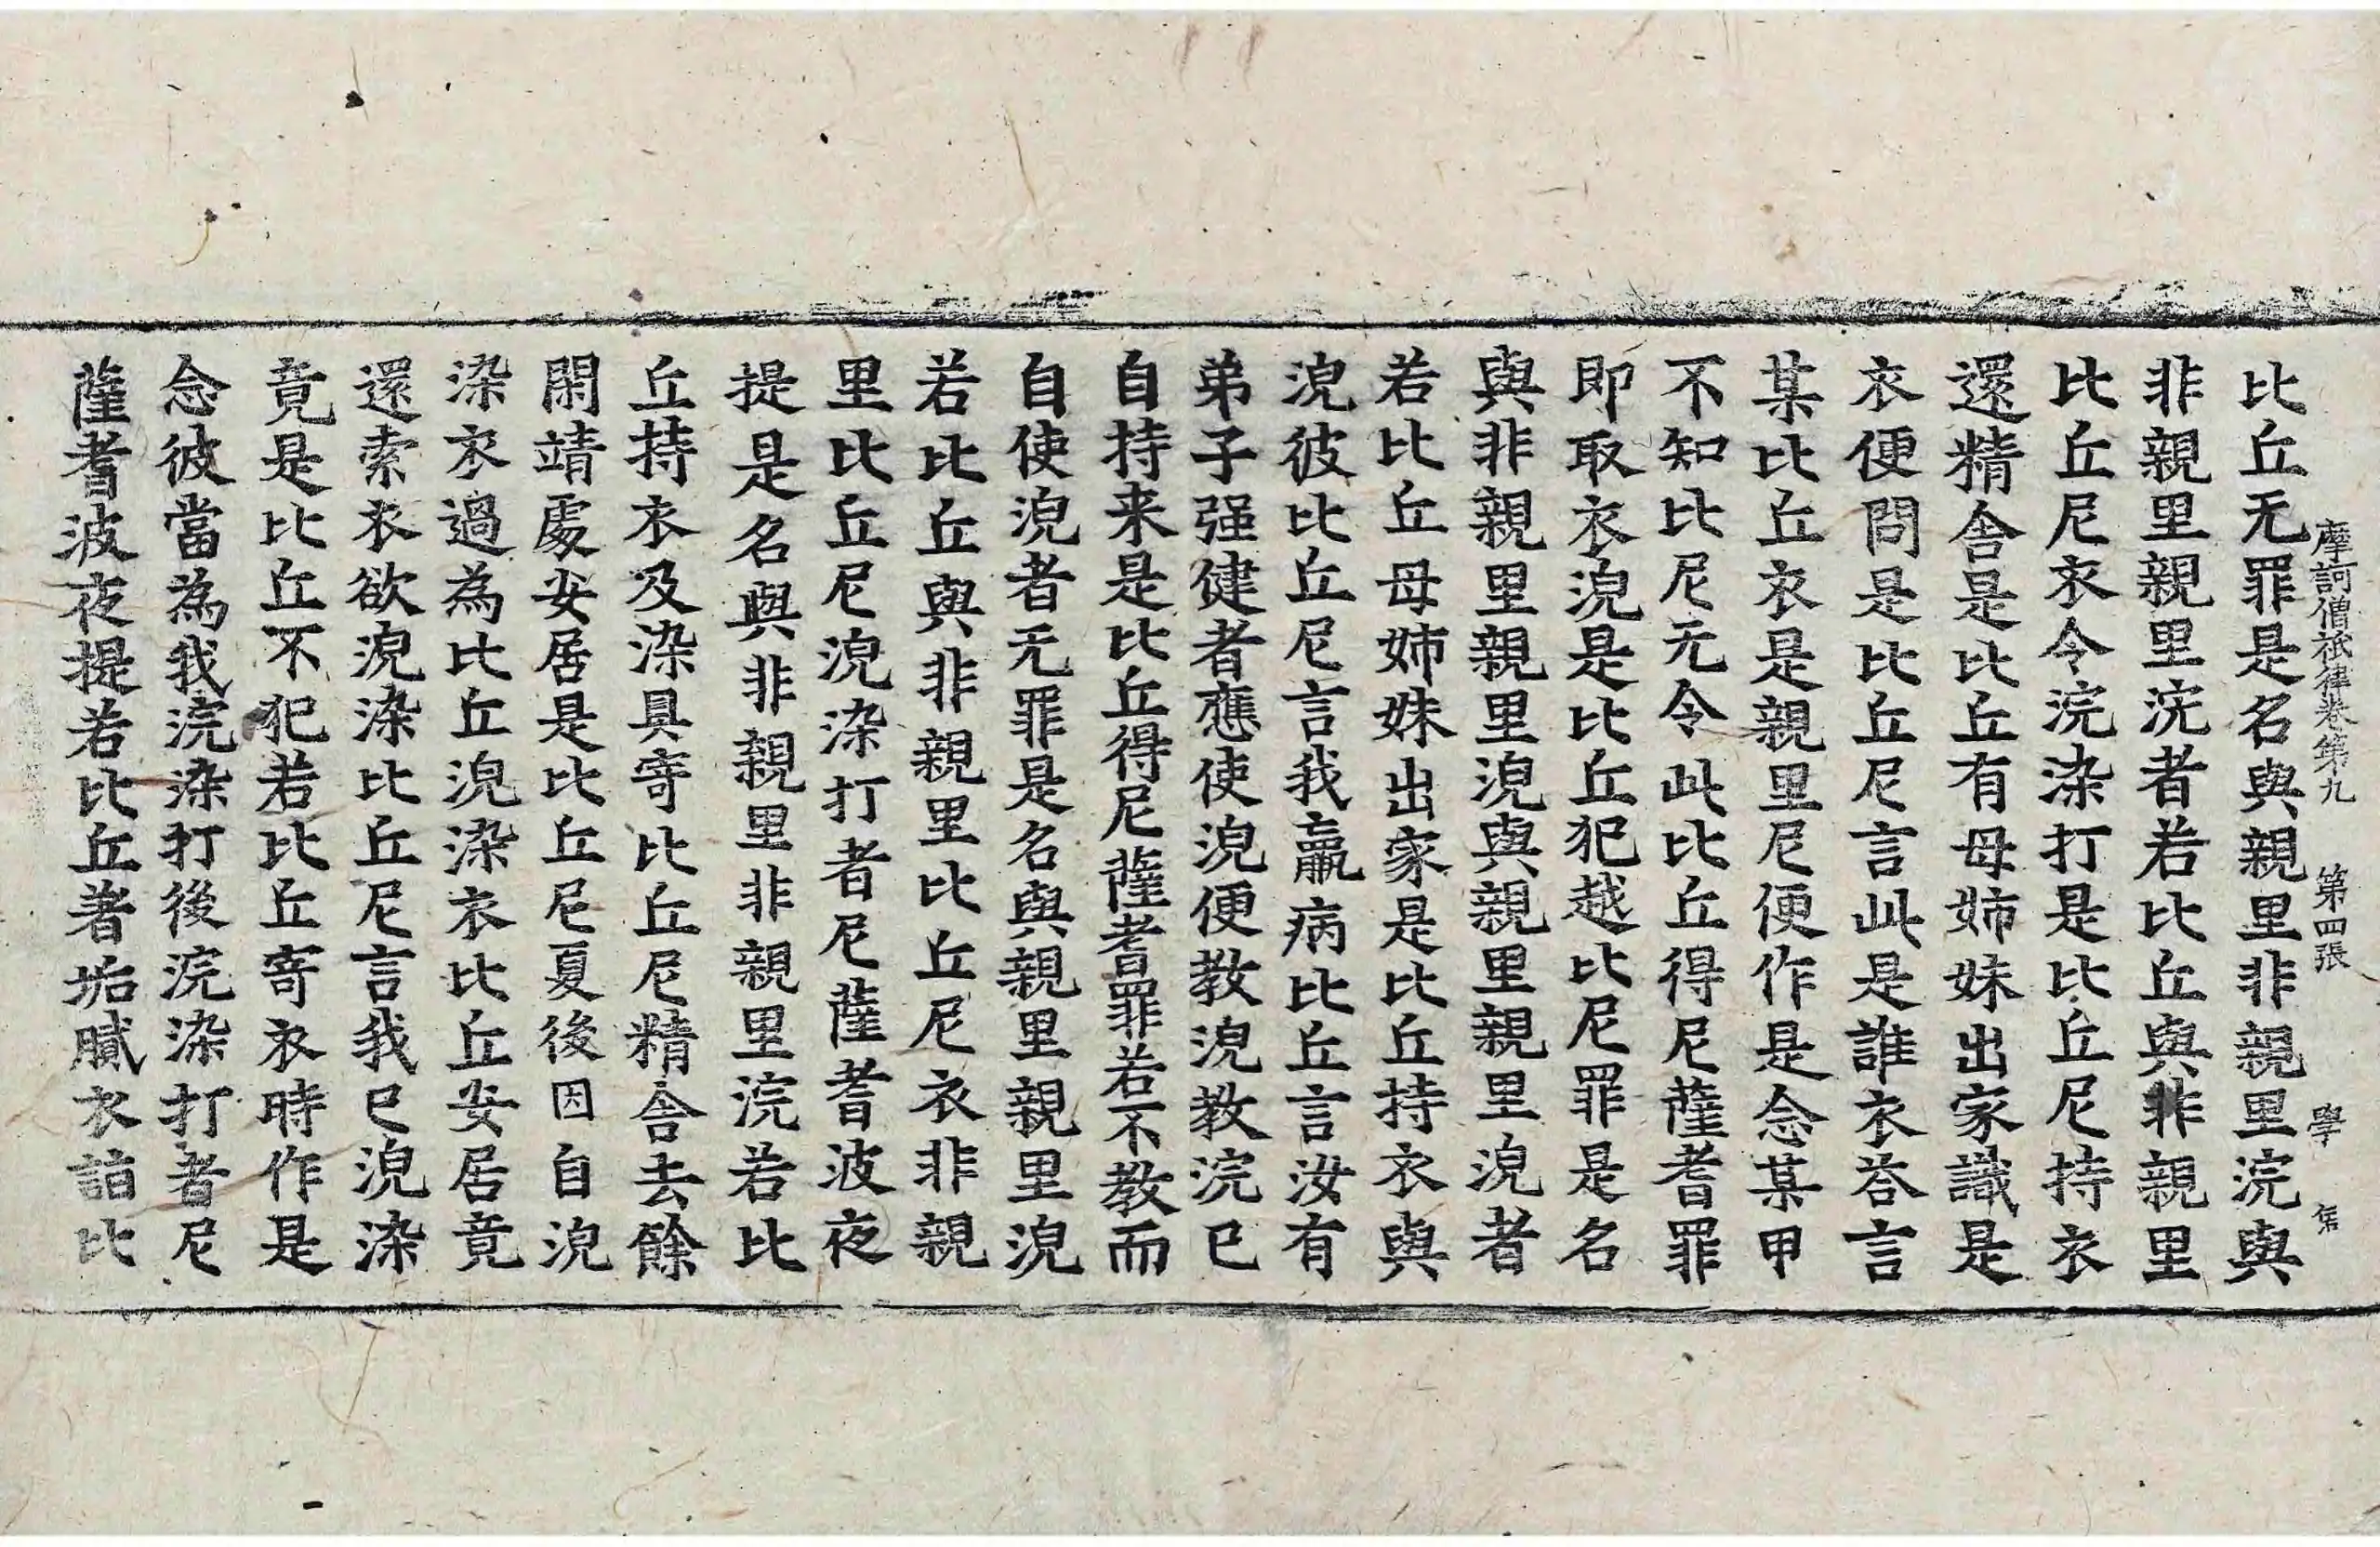 摩訶僧祇律卷第九　第四張　學
比丘无罪是名與親里非親里浣與
非親里親里浣者若比丘與非親里
比丘尼衣令浣染打是比丘尼持衣
還精舍是比丘有母姉妹出家識是
衣便問是比丘尼言此是誰衣荅言
某比丘衣是親里尼便作是念某甲
不知比尼无令此比丘得尼薩耆罪
即取衣浣是比丘犯越比尼罪是名
與非親里親里浣與親里親里浣者
若比丘母姉妹出家是比丘持衣與
浣彼比丘尼言我羸病比丘言汝有
弟子强健者應使浣便教浣教浣已
自持来是比丘得尼薩耆罪若不教而
自使浣者无罪是名與親里親里浣
若比丘與非親里比丘尼衣非親
里比丘尼浣染打者尼薩耆波夜
提是名與非親里非親里浣若比
丘持衣及染具寄比丘尼精舍去餘
閑靖處安居是比丘尼夏後因自浣
染衣過為比丘浣染衣比丘安居竟
還索衣欲浣染比丘尼言我已浣染
竟是比丘不犯若比丘寄衣時作是
念彼當為我浣染打後浣染打者尼
薩耆波夜提若比丘著垢膩衣詣比